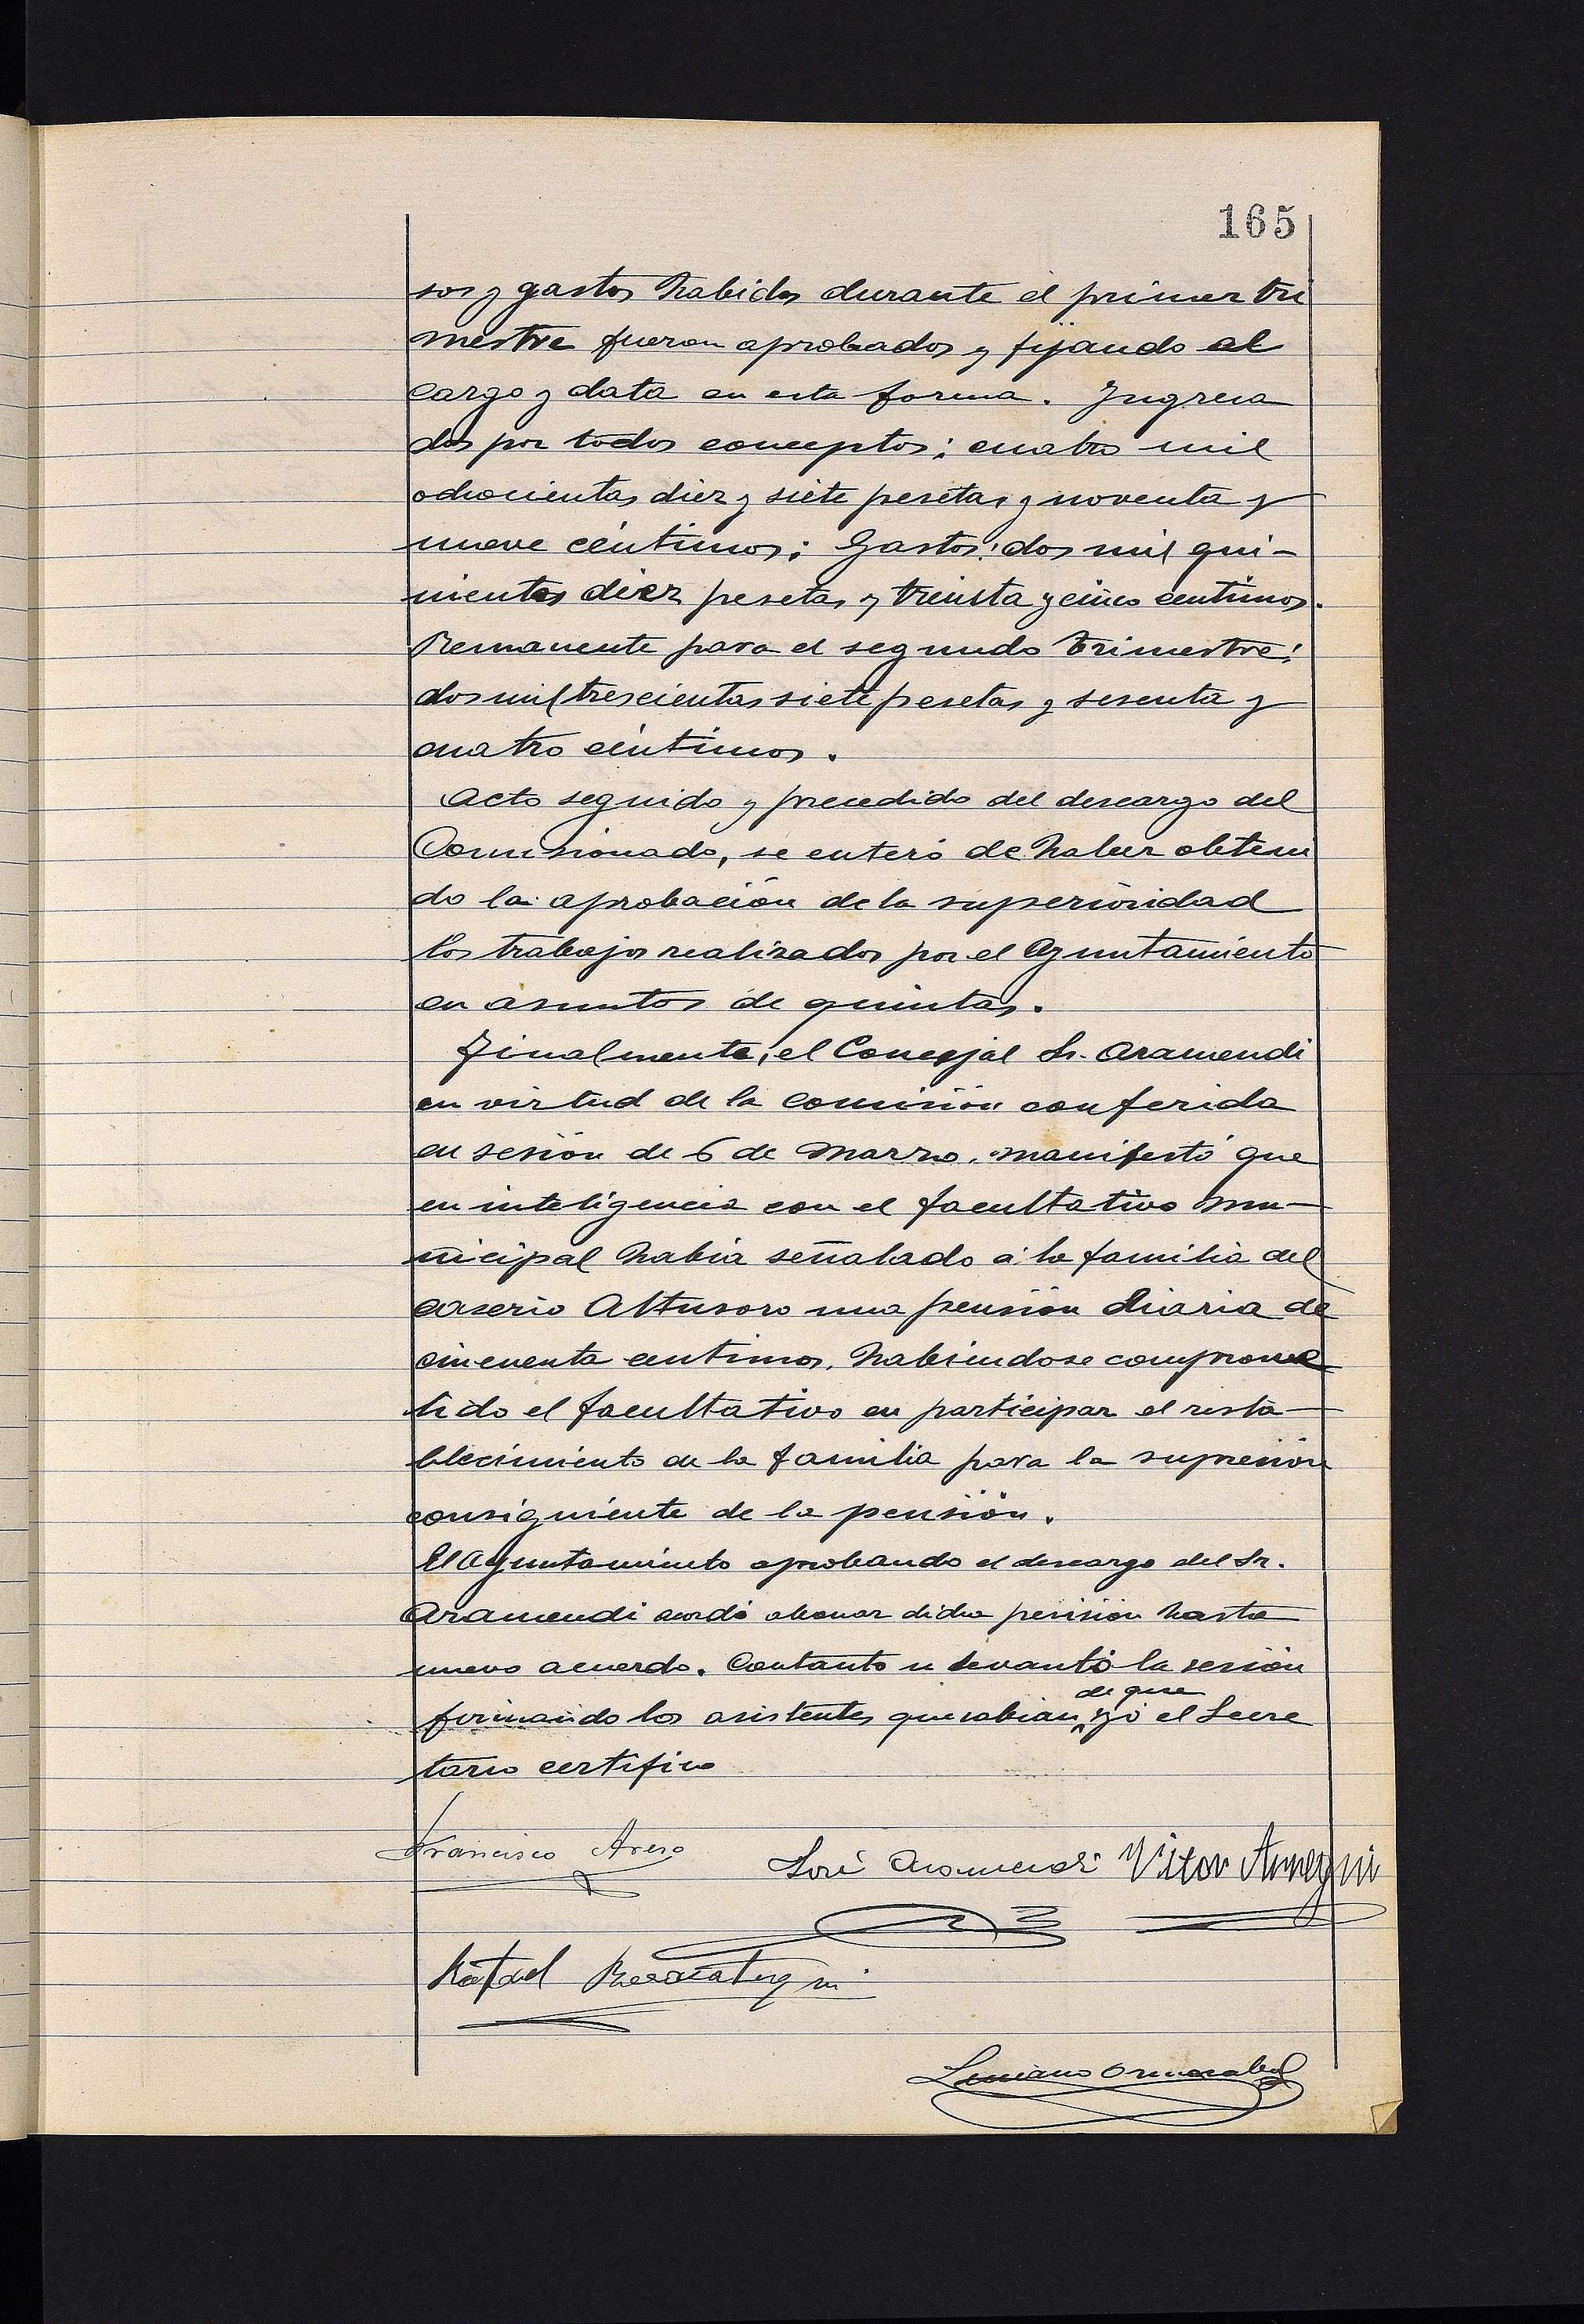 165
sos y gastos habidos durante el primer tri
mestre fueron aprobados y fijando el
cargo y data en esta forma. Ingresa
dos por todos conceptos: cuatro mil
ochocientas diez y siete pesetas y noventa y
nueve céntimos; Gastos: dos mil qui-
nientas diez pesetas y treinta y cinco centimos.
Remanente para el segundo trimestre:
dos mil trescientas siete pesetas y sesenta y
cuatro céntimos.
Acto seguido y precedido del descargo del
Comisionado, se enteró de haber obteni
do la aprobación de la superioridad
los trabajos realizados por el Ayuntamiento
en asuntos de quintas.
Finalmente, el Concejal Sr. Aramendi
en virtud de la comisión conferida
en sesión de 6 de Marzo, manifestó que
en inteligencia con el facultativo mu-
nicipal habia señalado á la familia del
caserio Altusoro una pensión diaria de
cincuenta centimos, habiendose comprome
tido el facultativo en participar el resta-
blecimiento de la familia para la supresión
consiguiente de la pensión.
El Ayuntamiento aprobando el descargo del Sr.
Aramendi acordó abonar dicha pensión hasta
nuevo acuerdo. Contanto se levantó la sesión
firmando los asistentes que sabian, de que yó el Secre
tario certifico
Francisco Areso
José Aramendi Vitor Aunegui
Rafael Berasategui
Luciano Ormazabal